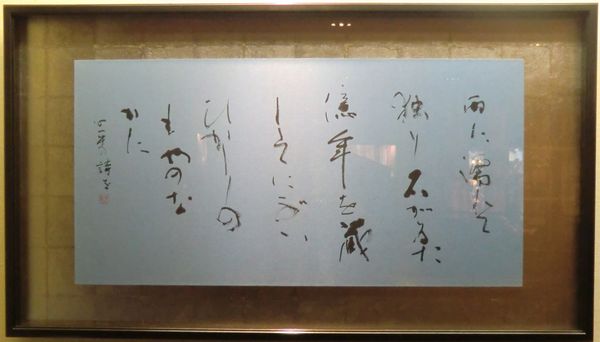 雨に濡れて
独り石がゐた
億年を蔵
してにぶい
ひかりの
もやのな
かに